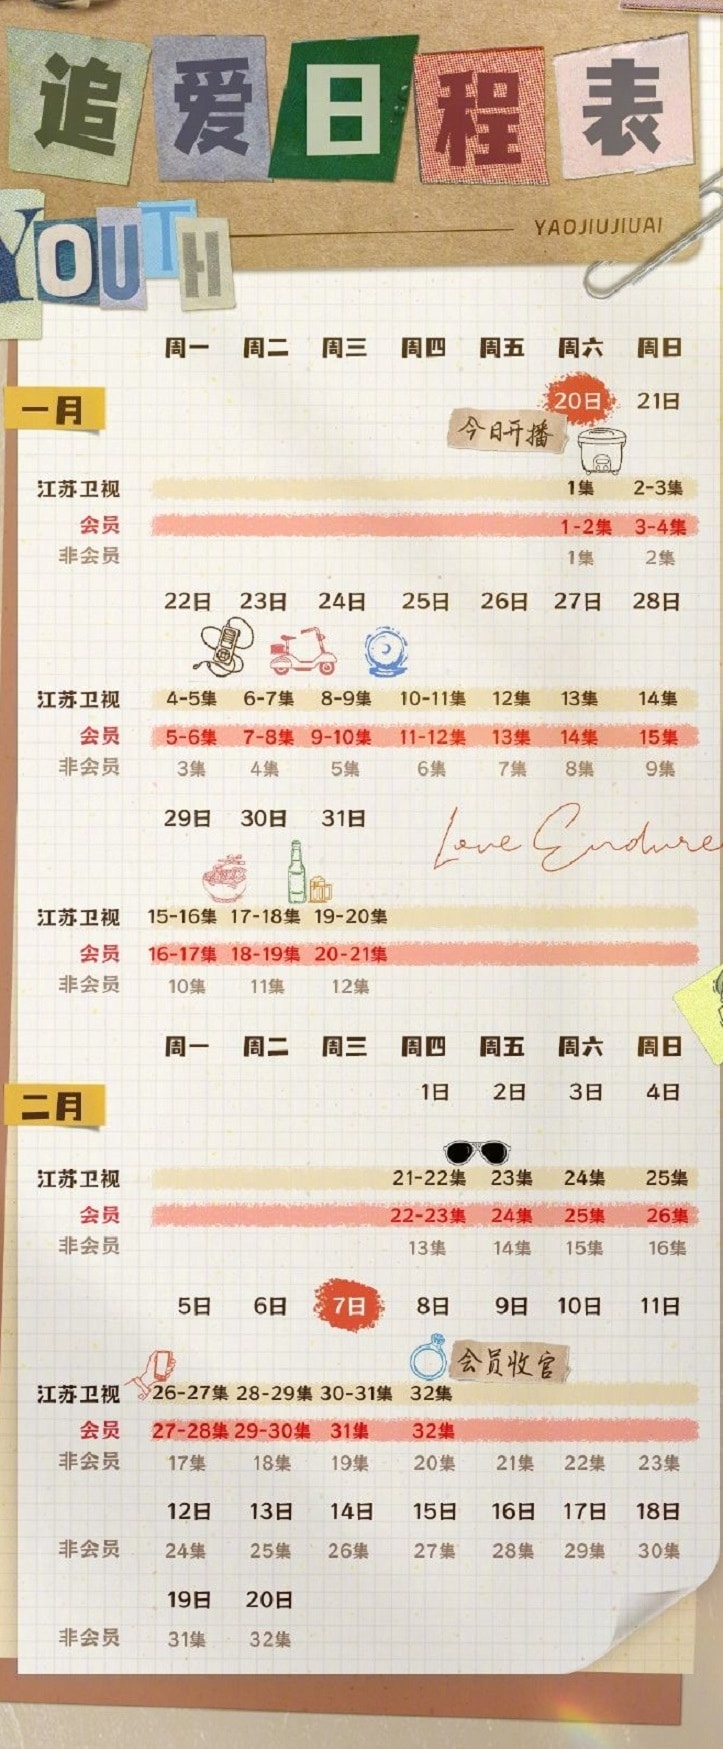 追爱日程表
YOUTH
YAOJIUJIUAI
周一 周二 周三 周四 周五 周六 周日
一月
20日 21日
今日开播
江苏卫视 1集 2-3集
会员 1-2集 3-4集
非会员 1集 2集
22日 23日 24日 25日 26日 27日 28日
江苏卫视 4-5集 6-7集 8-9集 10-11集 12集 13集 14集
会员 5-6集 7-8集 9-10集 11-12集 13集 14集 15集
非会员 3集 4集 5集 6集 7集 8集 9集
29日 30日 31日
Love Endure
江苏卫视 15-16集 17-18集 19-20集
会员 16-17集 18-19集 20-21集
非会员 10集 11集 12集
周一 周二 周三 周四 周五 周六 周日
二月
1日 2日 3日 4日
江苏卫视 21-22集 23集 24集 25集
会员 22-23集 24集 25集 26集
非会员 13集 14集 15集 16集
5日 6日 7日 8日 9日 10日 11日
会员收官
江苏卫视 26-27集 28-29集 30-31集 32集
会员 27-28集 29-30集 31集 32集
非会员 17集 18集 19集 20集 21集 22集 23集
12日 13日 14日 15日 16日 17日 18日
非会员 24集 25集 26集 27集 28集 29集 30集
19日 20日
非会员 31集 32集